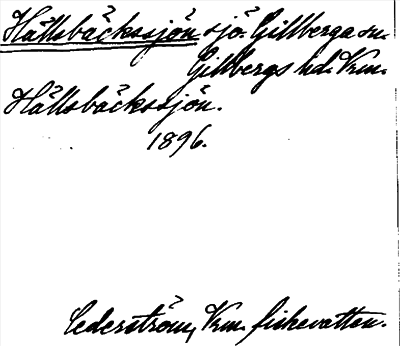 Hällsbäckssjön sjö. Gillberga sn.
Gillbergs hd. Vrm.
Hällsbäckssjön.
1896.
Cederström, Vrm. fiskevatten.